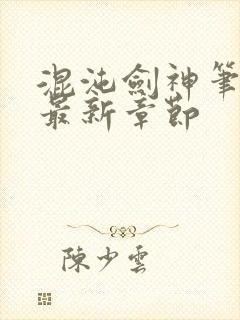 混沌劍神筆
最新章節
陳少雲